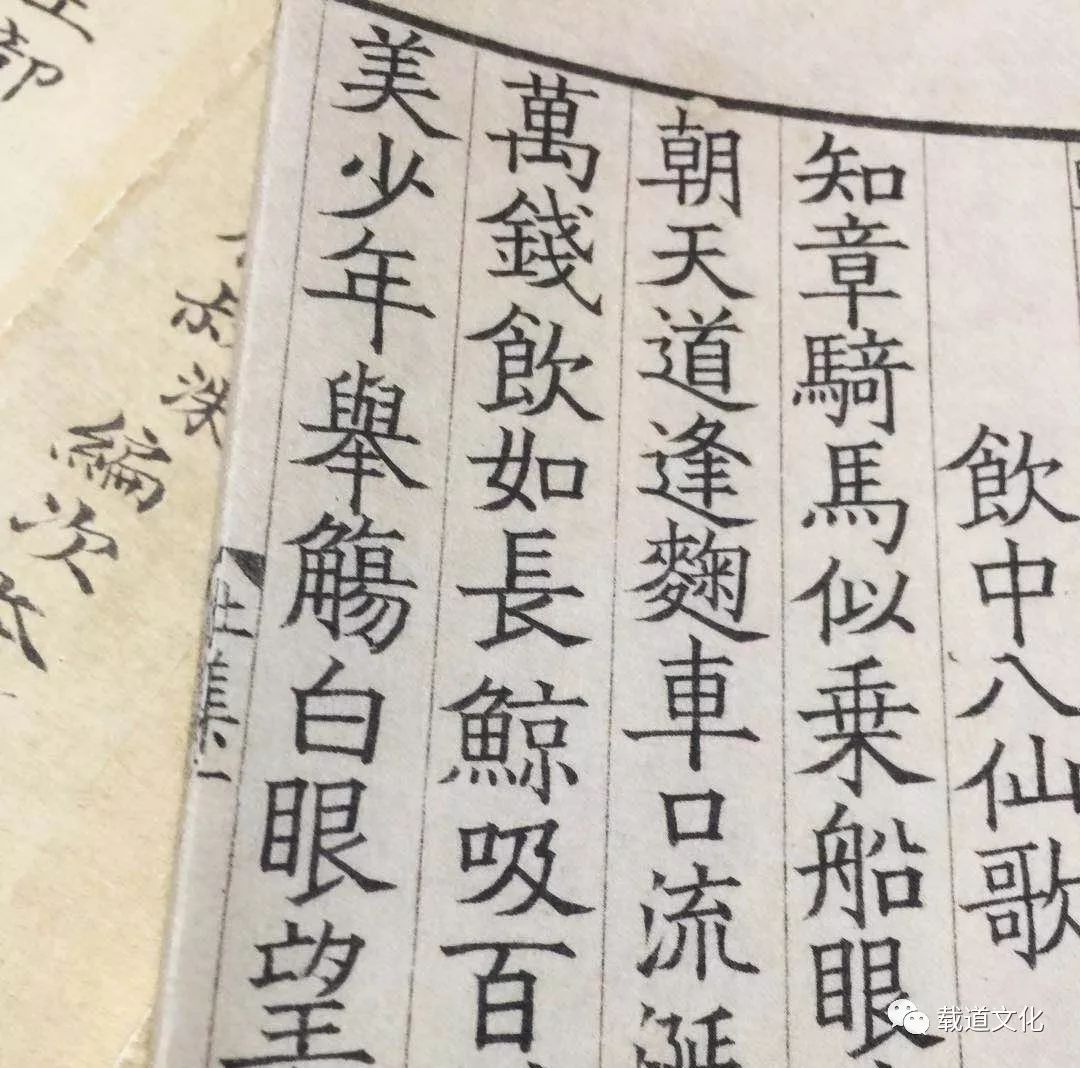 飲中八仙歌
知章騎馬似乗船眼
朝天道逢麴車口流涎
萬錢飲如長鯨吸百
美少年舉觴白眼望
杜集一
編次
载道文化